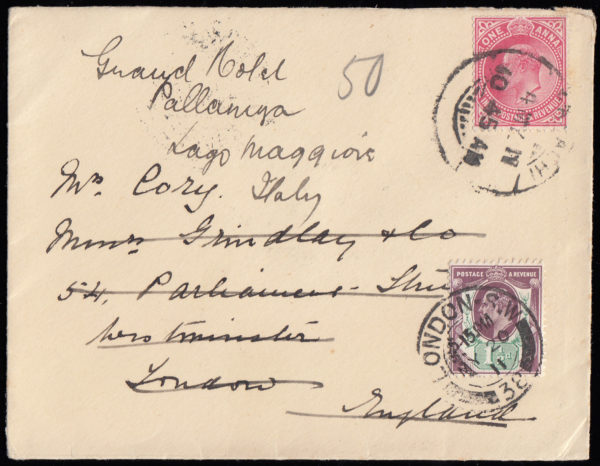 ONE ANNA
INDIA POSTAGE & REVENUE
50
Grand Hotel
Pallanza
Lago Maggiore
Italy
10 45 AM
Mrs Cory.
Messrs Grindlay & Co
54, Parliament Street
Westminster
London
England
POSTAGE & REVENUE
1½d
LONDON. S.W.
MY 20
11
38